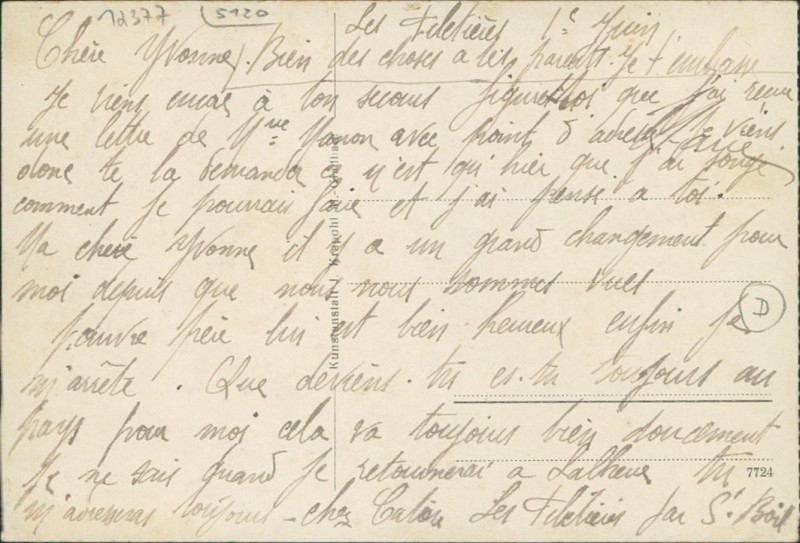 12377 5120
Les Filetiers 1e Juin
Chère Yvonne Bien des choses a tes parents. Je t'embrasse
Je viens encore à ton secours figure toi que j'ai reçu
une lettre de Mme avec point d'adresse je viens
donc te la demander ce n'est qu'hier que j'ai songé
comment je pourrais faire et j'ai pensé a toi.
Ma chère Yvonne il y a un grand changement pour
moi depuis que nous nous sommes vues
Pauvre père lui est bien heureux enfin je
m'arrête. Que deviens-tu es-tu toujours au
pays pour moi cela va toujours bien doucement
Je ne sais quand je retournerai a tu
m'adresseras toujours - chez Les Filetiers par St
Kunstanstalt Krapohl
D
7724